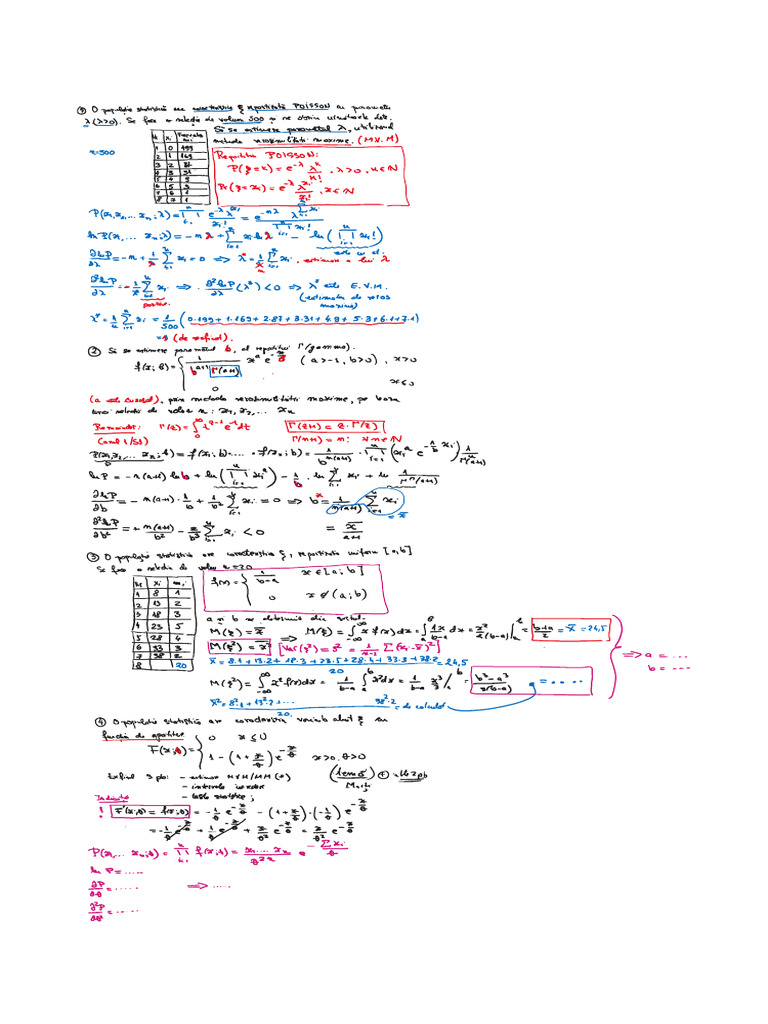 ① O populație statistică are caracteristica ξ repartizată POISSON cu parametru
λ (λ>0). Se face o selecție de volum 500 și ne obțin următoarele date.
Să se estimeze parametrul λ, utilizând
metoda verosimilității maxime. (M.V.M)
n=500
Nr xi Frecvența
1 0 199
2 1 169
3 2 87
4 3 31
5 4 9
6 5 3
7 6 1
8 7 1
Repartiția POISSON:
P(ξ=x) = e^-λ λ^x/x! , λ>0, x∈N
Pr(ξ=xi) = e^-λ λ^xi/xi! , x∈N
P(x1,x2,... xn;λ) = ∏ e^-λ λ^xi/xi! = e^-nλ λ^Σxi / ∏ xi!
ln P(x1,... xn;λ) = -nλ + Σ xi lnλ - ln(∏ xi!)
∂lnP/∂λ = -n + 1/λ Σ xi = 0 ⇒ λ* = 1/n Σ xi, estimator a lui λ
∂²lnP/∂λ = -1/λ² Σ xi ⇒ ∂²lnP/∂λ (λ*) < 0 ⇒ λ* este E.V.M.
pozitiv (estimator de veros
maximă)
λ* = 1/n Σ xi = 1/500 (0·199+1·169+2·87+3·31+4·9+5·3+6·1+7·1)
=1 (de verificat).
② Să se estimeze parametrul b, al repartiției Γ(gamma).
f(x; b) = { 1/(b^(a+1) Γ(a+1)) x^a e^-x/b (a>-1, b>0), x>0
0 x≤0
(a este cunoscut), prin metoda verosimilității maxime, pe baza
unei selecții de volum n: x1, x2,... xn
Γ(z) = ∫ t^(z-1) e^-t dt Γ(z+1) = z·Γ(z)
(anul 1/S1) Γ(n+1) = n! ∀ n∈N
P(x1,x2,... xn;b) = f(x1;b)·...·f(xn;b) = 1/b^n(a+1) · ∏ (xi^a e^-1/b xi) 1/Γ^n(a+1)
ln P = -n(a+1) ln b + ln(∏ xi^a) - 1/b · Σ xi + ln 1/Γ^n(a+1)
∂lnP/∂b = -n(a+1)·1/b + 1/b² Σ xi = 0 ⇒ b* = 1/n(a+1) Σ xi
= x̄
∂²lnP/∂b² = + n(a+1)/b² - 2/b³ Σ xi < 0 = x̄/a+1
③ O populație statistică are caracteristica ξ, repartizată uniform [a,b]
Se face o selecție de volum n=20
Nr xi ni
1 8 1
2 13 2
3 18 3
4 23 5
5 28 4
6 33 3
7 38 2
8 20
f(x) = { 1/b-a x∈[a;b]
0 x∉(a;b)
M(ξ) = x̄ ⇒ M(ξ) = ∫ x f(x) dx = ∫ 1x/b-a dx = x²/2(b-a) | = b+a/2 = x̄ = 24,5
M(ξ²) = x̄² [Var(ξ²) = s² = 1/n-1 Σ (xi-x̄)²]
⇒ a = ...
b = ...
x̄ = 8·1+13·2+18·3+23·5+28·4+33·3+38·2 / 20 = 24,5
M(ξ²) = ∫ x² f(x) dx = 1/b-a ∫ x² dx = 1/b-a x³/3 | = b³-a³/3(b-a) = ....
x̄² = 8²·1+13²·2+... 38²·2 / 20 = de calculat
④ O populație statistică are caracteristica variabilă aleat ξ cu
funcția de repartiție
F(x;θ) = { 0 x≤0
1-(1+x/θ) e^-x/θ x>0, θ>0
(temă)
Indicație
! F'(x;θ) = f(x;θ) = -1/θ e^-x/θ - (1+x/θ)·(-1/θ) e^-x/θ
= -1/θ e^-x/θ + 1/θ e^-x/θ + x/θ² e^-x/θ = x/θ² e^-x/θ
P(x1,... xn;θ) = ∏ f(xi;θ) = x1.... xn/θ^2n e^-Σxi/θ
ln P = .....
∂P/∂θ = ..... ⇒ .....
∂²P/∂θ² = .....